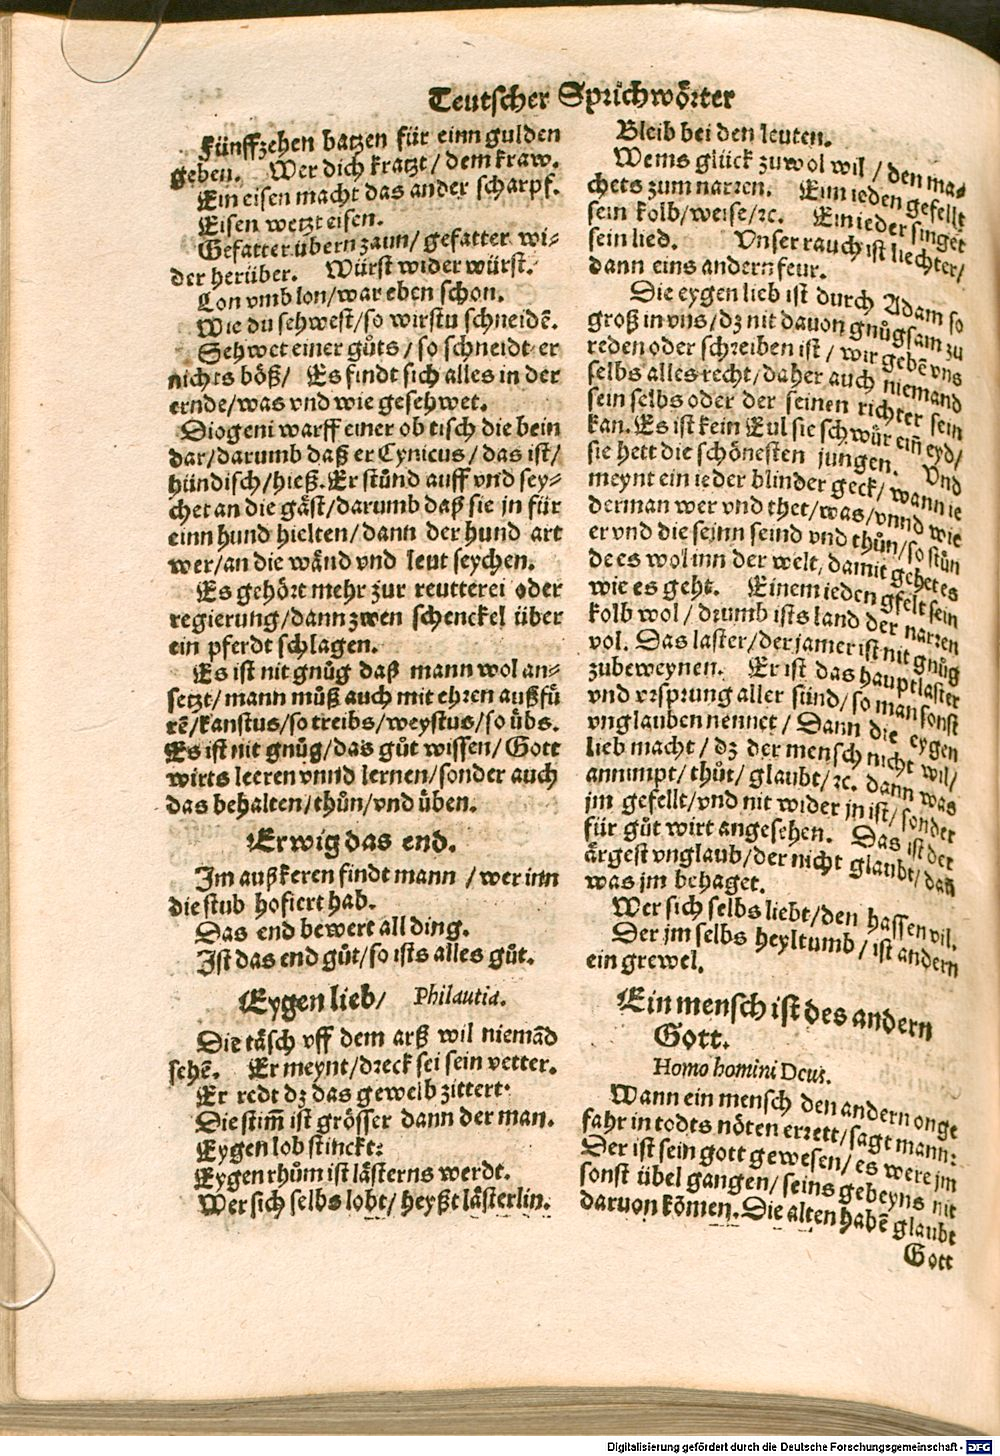 Teutscher Sprichwörter
Fünffzehen batzen für einn gulden
geben. Wer dich kratzt/ dem kraw.
Ein eisen macht das ander scharpf.
Eisen wetzt eisen.
Gefatter übern zaun/ gefatter wi-
der herüber. Würst wider würst.
Lon vmb lon/war eben schon.
Wie du sehwest/so wirstu schneidē.
Sehwet einer gůts / so schneidt er
nichts böß/ Es findt sich alles in der
ernde/was vnd wie gesehwet.
Diogeni warff einer ob tisch die bein
dar/darumb daß er Cynicus/ das ist/
hündisch/hieß. Er stůnd auff vnd sey-
chet an die gäst/darumb daß sie jn für
einn hund hielten/ dann der hund art
wer/an die wänd vnd leut seychen.
Es gehört mehr zur reutterei oder
regierung/dann zwen schenckel über
ein pferdt schlagen.
Es ist nit gnůg daß mann wol an-
setzt/ mann můß auch mit ehren außfü
rē/kanstus/so treibs/weystus/so übs.
Es ist nit gnůg/das gůt wissen/ Gott
wirts leeren vnnd lernen/sonder auch
das behalten/thůn/vnd üben.
Erwig das end.
Im außkeren findt mann / wer inn
die stub hofiert hab.
Das end bewert all ding.
Ist das end gůt/so ists alles gůt.
Eygen lieb/ Philautia.
Die täsch vff dem arß wil niemād
sehē. Er meynt/dreck sei sein vetter.
Er redt dz das geweib zittert.
Die stim̄ ist grösser dann der man.
Eygen lob stinckt:
Eygen rhům ist lästerns werdt.
Wer sich selbs lobt/ heyßt lästerlin.
Bleib bei den leuten.
Wems glück zuwol wil / den ma-
chets zum narren. Einn ieden gefellt
sein kolb/weise/ꝛc. Ein ieder singet
sein lied. Vnser rauch ist liechter/
dann eins andern feur.
Die eygen lieb ist durch Adam so
groß in vns/dz nit dauon gnůgsam zu
reden oder schreiben ist / wir gebē vns
selbs alles recht/daher auch niemand
sein selbs oder der seinen richter sein
kan. Es ist kein Eul sie schwůr ein̄ eyd/
sie hett die schönesten jungen. Vnd
meynt ein ieder blinder geck/ wann ie
derman wer vnd thet/was/vnnd wie
er vnd die seinn seind vnd thůn/so stůn
de es wol inn der welt, damit gehet es
wie es geht. Einem ieden gfelt sein
kolb wol / drumb ists land der narren
vol. Das laster/der jamer ist nit gnůg
zubeweynen. Er ist das hauptlaster
vnd vrsprung aller sünd/so man sonst
vnglauben nennet / Dann die eygen
lieb macht / dz der mensch nicht wil/
annimpt/ thůt/ glaubt/ ꝛc. dann was
jm gefellt/vnd nit wider jn ist/ sonder
für gůt wirt angesehen. Das ist der
ärgest vnglaub/der nicht glaubt/ dan̄
was jm behaget.
Wer sich selbs liebt/den hassen vil.
Der jm selbs heyltumb/ ist andern
ein grewel.
Ein mensch ist des andern
Gott.
Homo homini Deus.
Wann ein mensch den andern onge
fahr in todts nöten errett/sagt mann:
Der ist sein gott gewesen/ es were jm
sonst übel gangen/ seins gebeyns nit
daruon kōmen. Die alten habē glaubt
Gott
Digitalisierung gefördert durch die Deutsche Forschungsgemeinschaft - DFG